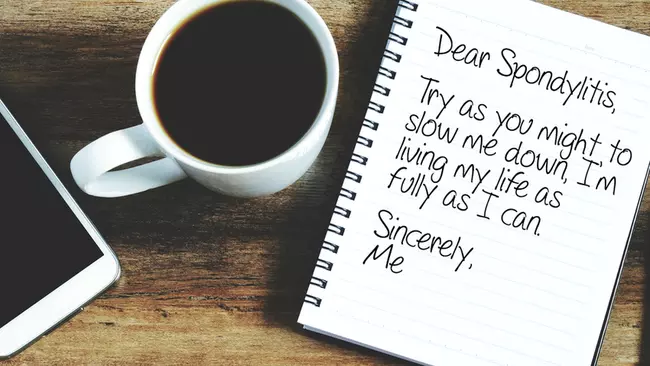 Dear Spondylitis,
Try as you might to
slow me down, I'm
living my life as
fully as I can.
Sincerely,
Me